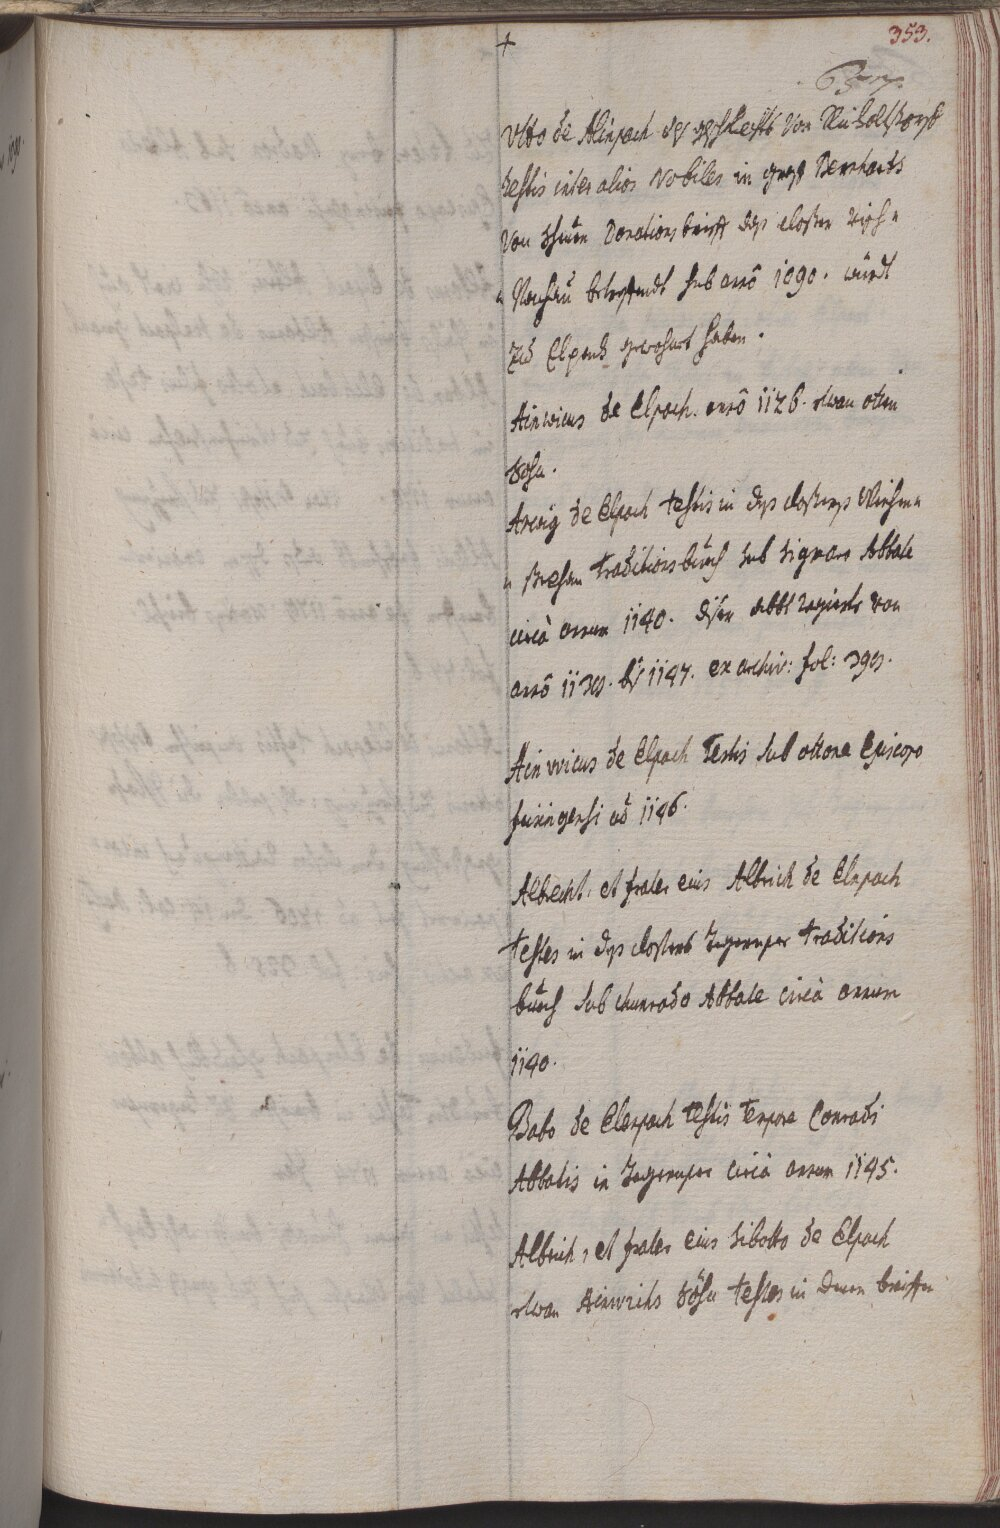 353.
657.
+
Otto de Alinpach des geschlechts von
testis inter alios Nobiles in graff Bernhards
von donationsbrieff des closters
betreffendt sub anno 1090. würdt
zu Elpach gewohnt haben.
Ainwicus de Elpach. anno 1126. etwan
Sohn.
Arwig de Elpach testis in des closters
traditionsbuech sub Abbate
circa annum 1140. diser abbt regierte von
anno 1139. biß 1147. ex archiv: fol: 393.
Ainwicus de Elpach testis sub ottone Episcopo
frisingensi ad 1146.
Albrecht, et frater eius Albrich de Elnpach
testes in des closters Tegernsee traditions
buech sub chunrado Abbate circa annum
1140.
Babo de Elenpach testis tempore Conradi
Abbatis in Tegernsee circa annum 1145.
Albrich, et frater eius Sibotto de Elpach
etwan Ainwichs Söhn testes in brieffen